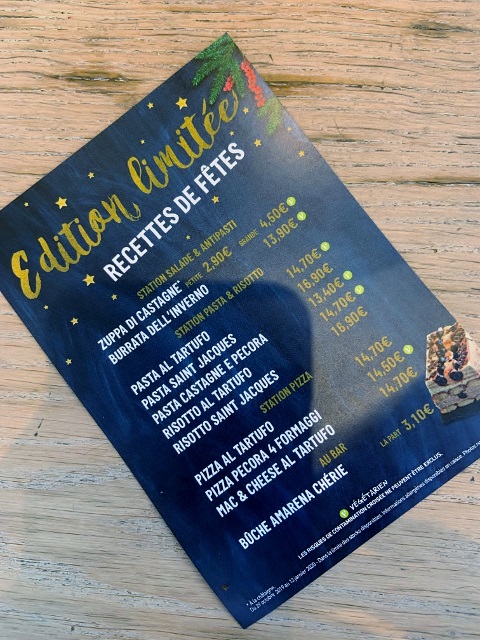 Edition limitée
RECETTES DE FÊTES
STATION SALADE & ANTIPASTI
ZUPPA DI CASTAGNE* PETITE 2,90€ GRANDE 4,50€
BURRATA DELL'INVERNO 13,90€
STATION PASTA & RISOTTO
PASTA AL TARTUFO 14,70€
PASTA SAINT JACQUES 16,90€
PASTA CASTAGNE E PECORA 13,40€
RISOTTO AL TARTUFO 14,70€
RISOTTO SAINT JACQUES 16,90€
STATION PIZZA
PIZZA AL TARTUFO 14,70€
PIZZA PECORA 4 FORMAGGI 14,50€
MAC & CHEESE AL TARTUFO 14,70€
AU BAR
BÛCHE AMARENA CHÉRIE LA PART 3,10€
VÉGÉTARIEN
LES RISQUES DE CONTAMINATION CROISÉE NE PEUVENT ÊTRE EXCLUS.
* À la châtaigne.
Du 31 octobre 2019 au 12 janvier 2020 - Dans la limite des stocks disponibles. Informations allergènes disponibles en caisse. Photos